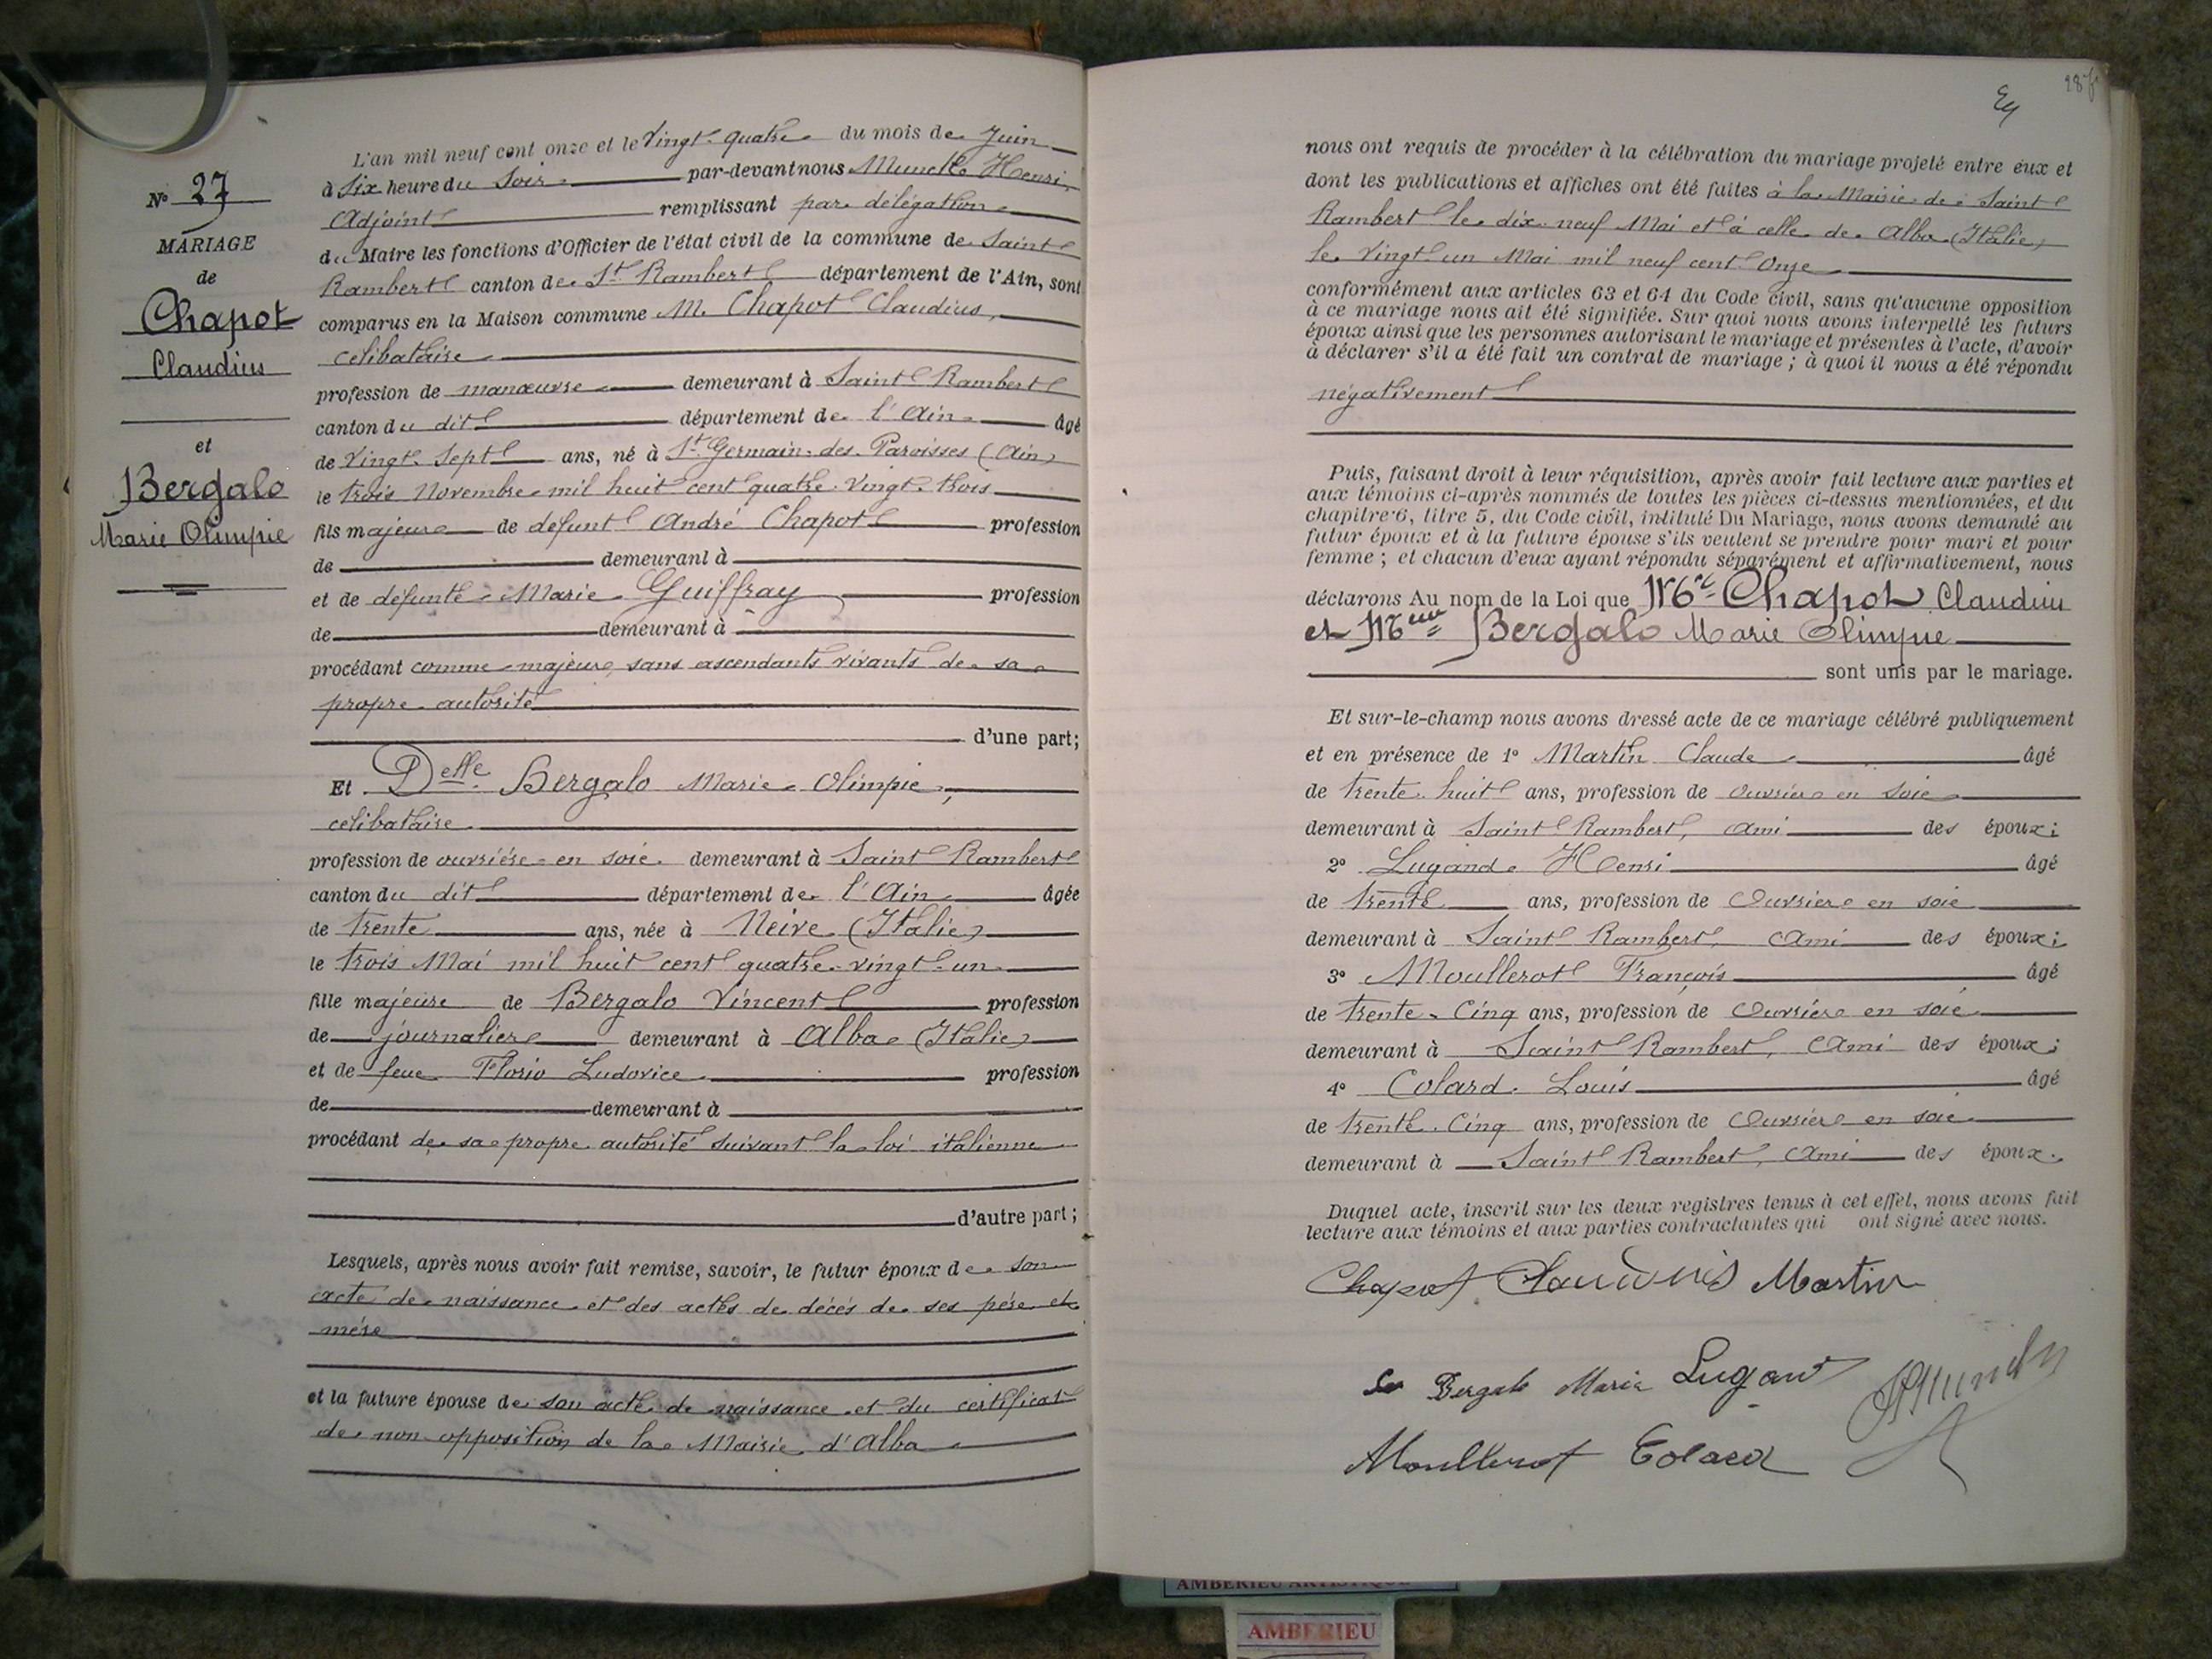 N° 27
MARIAGE
de
Chapot
Claudius
et
Bergalo
Marie Olimpie
L'an mil neuf cent onze et le Vingt-quatre du mois de Juin
à Six heure du Soir par-devant nous Henri,
Adjoint remplissant par délégation
du Maire les fonctions d'Officier de l'état civil de la commune de Saint
Rambert canton de St Rambert département de l'Ain, sont
comparus en la Maison commune M. Chapot Claudius,
celibataire
profession de manœuvre demeurant à Saint Rambert
canton du dit département de l'Ain âgé
de Vingt-Sept ans, né à St Germain-des-Paroisses (Ain)
le trois Novembre mil huit cent quatre-vingt-trois
fils majeure de defunt André Chapot profession
de demeurant à
et de défunte Marie Guiffray profession
de demeurant à
procédant comme majeure, sans ascendants vivants de sa
propre autorité
d'une part;
Et Delle Bergalo Marie Olimpie,
celibataire
profession de ouvriére en soie demeurant à Saint Rambert
canton du dit département de l'Ain âgée
de trente ans, née à Neive (Italie)
le trois Mai mil huit cent quatre-vingt-un
fille majeure de Bergalo Vincent profession
de journalier demeurant à Alba (Italie)
et de feue Florio Ludovice profession
de demeurant à
procédant de sa propre autorité suivant la loi italienne
d'autre part;
Lesquels, après nous avoir fait remise, savoir, le futur époux de son
acte de naissance et des actes de décés de ses pére et
mére
et la future épouse de son acte de naissance et du certificat
de non opposition de la Mairie d'Alba
187
nous ont requis de procéder à la célébration du mariage projeté entre eux et
dont les publications et affiches ont été faites à la Mairie de Saint
Rambert le dix-neuf Mai et à celle de Alba (Italie)
le Vingt un Mai mil neuf cent Onze
conformément aux articles 63 et 64 du Code civil, sans qu'aucune opposition
à ce mariage nous ait été signifiée. Sur quoi nous avons interpellé les futurs
époux ainsi que les personnes autorisant le mariage et présentes à l'acte, d'avoir
à déclarer s'il a été fait un contrat de mariage; à quoi il nous a été répondu
négativement
Puis, faisant droit à leur réquisition, après avoir fait lecture aux parties et
aux témoins ci-après nommés de toutes les pièces ci-dessus mentionnées, et du
chapitre 6, titre 5, du Code civil, intitulé Du Mariage, nous avons demandé au
futur époux et à la future épouse s'ils veulent se prendre pour mari et pour
femme; et chacun d'eux ayant répondu séparément et affirmativement, nous
déclarons Au nom de la Loi que Mr Chapot Claudius
et Melle Bergalo Marie Olimpie
sont unis par le mariage.
Et sur-le-champ nous avons dressé acte de ce mariage célébré publiquement
et en présence de 1° Martin Claude âgé
de trente-huit ans, profession de Ouvrier en soie
demeurant à Saint Rambert, ami des époux;
2° Lugand Henri âgé
de trente ans, profession de Ouvrier en soie
demeurant à Saint Rambert, ami des époux;
3° Moullerot François âgé
de trente-Cinq ans, profession de Ouvrier en soie
demeurant à Saint Rambert, ami des époux;
4° Colard Louis âgé
de trente-Cinq ans, profession de Ouvrier en soie
demeurant à Saint Rambert, ami des époux.
Duquel acte, inscrit sur les deux registres tenus à cet effet, nous avons fait
lecture aux témoins et aux parties contractantes qui ont signé avec nous.
Chapot Claudius Martin
Bergalo Maria Lugand
Moullerot Colard
AMBERIEU ARTISTIQUE
AMBERIEU